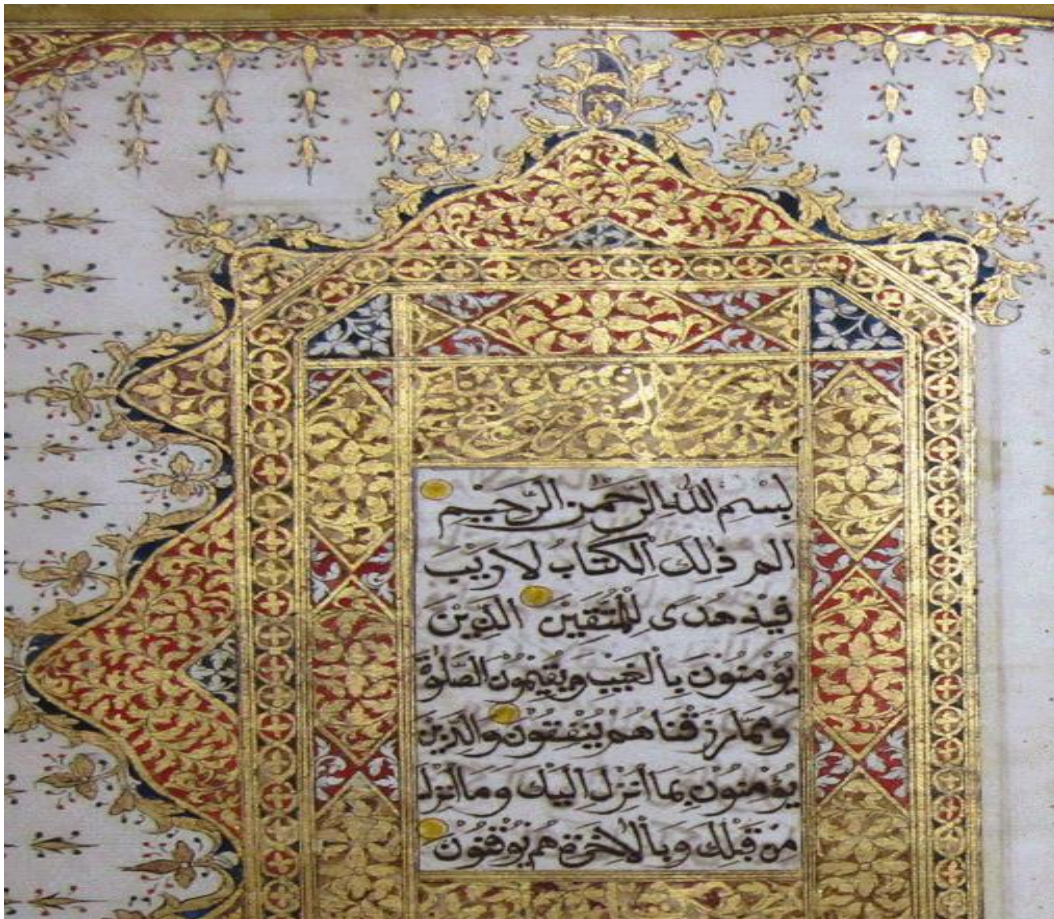 بسم الله الرحمن الرحيم
الم ذلك الكتاب لا ريب
فيه هدى للمتقين الذين
يؤمنون بالغيب ويقيمون الصلوة
ومما رزقناهم ينفقون والذين
يؤمنون بما انزل اليك وما انزل
من قبلك وبالاخرة هم يوقنون